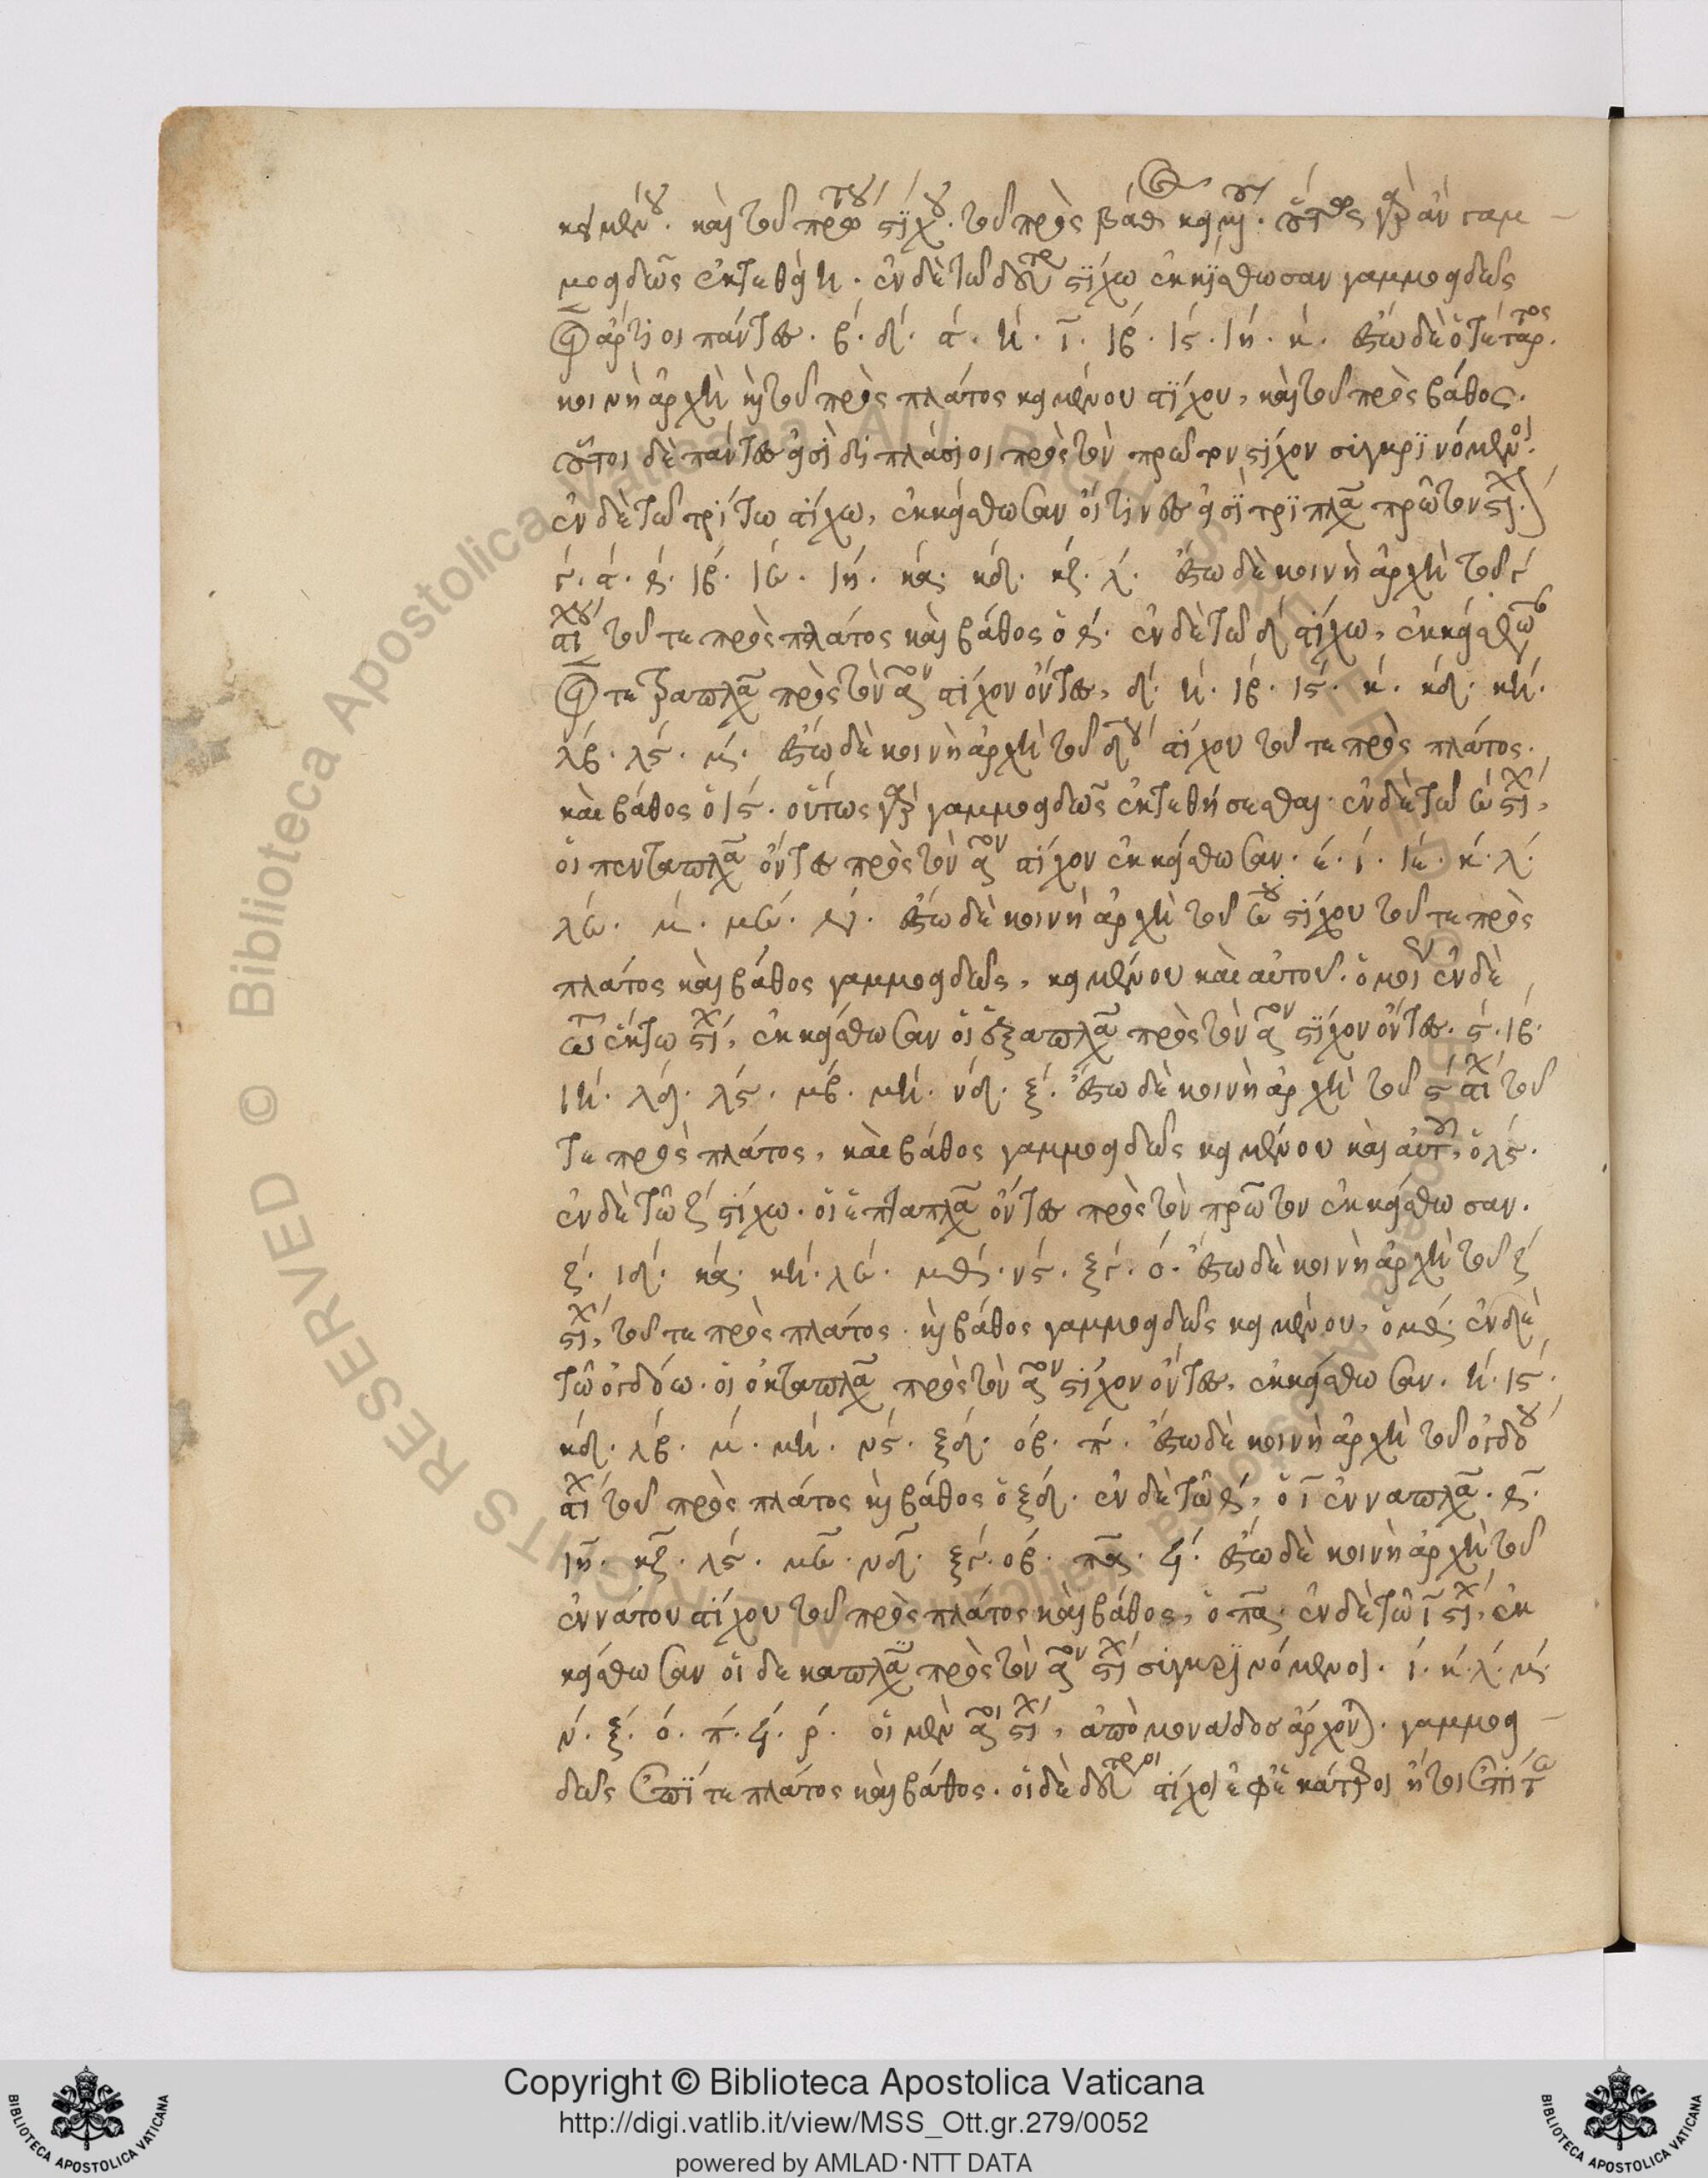 κειμένου. καὶ τοῦ πρώτου στίχου. τοῦ πρὸς βάθος κειμένου. οὕτως γὰρ ἂν γαμ-
μοειδῶς ἐκτεθείη. ἐν δὲ τῷ δευτέρῳ στίχω ἐκκείσθωσαν γαμμοειδῶς
οἱ ἄρτιοι πάντες. β. δ. ϛ. η. ι. ιβ. ιϛ. ιη. κ. ἔστω δὲ ὅ τε τέταρτος.
κοινὴ ἀρχὴ καὶ τοῦ πρὸς πλάτος κειμένου στίχου, καὶ τοῦ πρὸς βάθος.
οὗτοι δὲ πάντες εἰσὶ διπλάσιοι πρὸς τὸν πρῶτον στίχον συγκρινόμενοι.
ἐν δὲ τῷ τρίτω στίχω, ἐκκείσθωσαν οἵτινες εἰσὶ τριπλάσιοι πρῶτον στίχον
γ. ϛ. θ. ιβ. ιε. ιη. κα. κδ. κζ. λ. ἔστω δὲ κοινὴ ἀρχὴ τοῦ γ
στίχου τοῦ τε πρὸς πλάτος καὶ βάθος ὁ θ. ἐν δὲ τῷ δ στίχω, ἐκκείσθωσαν
οἱ τετραπλάσιοι πρὸς τὸν αον στίχον ὄντες, δ. η. ιβ. ιϛ. κ. κδ. κη.
λβ. λϛ. μ. ἔστω δὲ κοινὴ ἀρχὴ τοῦ δου στίχου τοῦ τε πρὸς πλάτος.
καὶ βάθος ὁ ιϛ. οὕτως γὰρ γαμμοειδῶς ἐκτεθήσεσθαι. ἐν δὲ τῷ ε στίχω,
οἱ πενταπλάσιοι ὄντες πρὸς τὸν αον στίχον ἐκκείσθωσαν. ε. ι. ιε. κ. λ.
λε. μ. με. ν. ἔστω δὲ κοινὴ ἀρχὴ τοῦ εου στίχου τοῦ τε πρὸς
πλάτος καὶ βάθος γαμμοειδῶς, κειμένου καὶ αὐτοῦ. ὁ κε ἐν δὲ
τῷ ἕκτω στίχω, ἐκκείσθωσαν οἱ ἑξαπλάσιοι πρὸς τὸν αον στίχον ὄντες. ϛ. ιβ.
ιη. λδ. λϛ. μβ. μη. νδ. ξ. ἔστω δὲ κοινὴ ἀρχὴ τοῦ ϛ στίχου τοῦ
τε πρὸς πλάτος, καὶ βάθος γαμμοειδῶς κειμένου καὶ αὐτοῦ, ὁ λϛ.
ἐν δὲ τῷ ζ στίχω. οἱ ἑπταπλάσιοι ὄντες πρὸς τὸν πρῶτον ἐκκείσθωσαν.
ζ. ιδ. κα. κη. λε. μθ. νϛ. ξγ. ο. ἔστω δὲ κοινὴ ἀρχὴ τοῦ ζ
στίχου, τοῦ τε πρὸς πλάτος. καὶ βάθος γαμμοειδῶς κειμένου, ὁ μθ. ἐν δὲ
τῷ ὀγδόω. οἱ ὀκταπλάσιοι πρὸς τὸν αον στίχον ὄντες, ἐκκείσθωσαν. η. ιϛ.
κδ. λβ. μ. μη. νϛ. ξδ. οβ. π. ἔστω δὲ κοινὴ ἀρχὴ τοῦ ὀγδόου
στίχου τοῦ πρὸς πλάτος καὶ βάθος ὁ ξδ. ἐν δὲ τῷ θ, οἱ ἐνναπλάσιοι. θ.
ιη. κζ. λϛ. με. νδ. ξγ. οβ. πα. ϟ. ἔστω δὲ κοινὴ ἀρχὴ τοῦ
ἐννάτου στίχου τοῦ πρὸς πλάτος καὶ βάθος, ὁ πα. ἐν δὲ τῷ ι στίχω, ἐκ
κείσθωσαν οἱ δεκαπλάσιοι πρὸς τὸν αον στίχον συγκρινόμενοι. ι. κ. λ. μ.
ν. ξ. ο. π. ϟ. ρ. οἱ μὲν αοι στίχοι, ἀπὸ μονάδος ἄρχονται. γαμμοει-
δῶς ἐπί τε πλάτος καὶ βάθος. οἱ δὲ δεύτεροι στίχοι ἐφ' ἑκάτεροι ἤτοι ἐπὶ τῶ